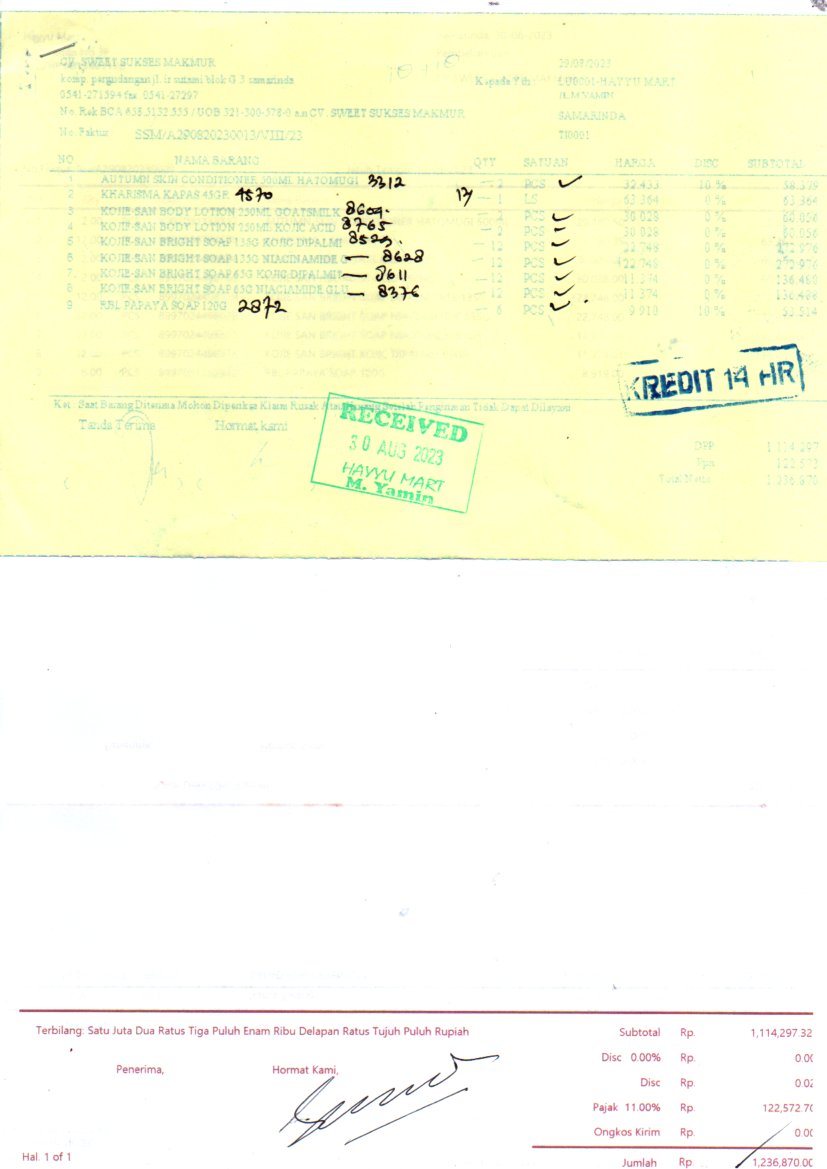 CV. SWEET SUKSES MAKMUR 29/08/2023
komp. pergudangan jl. ir sutami blok G 3 samarinda Kepada Yth : LUB001-HAYYU MART
0541-271594 fax 0541-27297 JL.M YAMIN
No. Rek BCA 858.5132.555 / UOB 321-300-578-0 a.n CV. SWEET SUKSES MAKMUR SAMARINDA
No. Faktur SSM/A290820230013/VIII/23 TI0001
NO NAMA BARANG QTY SATUAN HARGA DISC SUBTOTAL
1 AUTUMN SKIN CONDITIONER 500ML HATOMUGI 3312 2 PCS 32.433 10 % 58.379
2 KHARISMA KAPAS 45GR 4570 1 LS 63.364 0 % 63.364
3 KOJIE SAN BODY LOTION 250ML GOATSMILK 8609. 2 PCS 30.028 0 % 60.056
4 KOJIE-SAN BODY LOTION 250ML KOJIC ACID 8765 2 PCS 30.028 0 % 60.056
5 KOJIE-SAN BRIGHT SOAP 135G KOJIC DIPALMI 8529. 12 PCS 22.748 0 % 272.976
6 KOJIE SAN BRIGHT SOAP 135G NIACINAMIDE G 8628 12 PCS 22.748 0 % 272.976
7 KOJIE-SAN BRIGHT SOAP 65G KOJIC DIPALMIT 8611 12 PCS 11.374 0 % 136.488
8 KOJIE SAN BRIGHT SOAP 65G NIACIAMIDE GLU 8376 12 PCS 11.374 0 % 136.488
9 RBL PAPAYA SOAP 120G 2872 6 PCS 9.910 10 % 53.514
KREDIT 14 HR
Ket : Saat Barang Diterima Mohon Diperiksa Klaim Rusak Setelah Pengiriman Tidak Dapat Dilayani
Tanda Terima Hormat kami
RECEIVED
30 AUG 2023
HAYYU MART
M. Yamin
DPP 1.114.297
Ppn 122.573
Total Netto 1.236.870
Terbilang: Satu Juta Dua Ratus Tiga Puluh Enam Ribu Delapan Ratus Tujuh Puluh Rupiah Subtotal Rp. 1,114,297.32
Disc 0.00% Rp. 0.00
Penerima, Hormat Kami,
Disc Rp. 0.02
Pajak 11.00% Rp. 122,572.70
Ongkos Kirim Rp. 0.00
Hal. 1 of 1 Jumlah Rp. 1,236,870.00